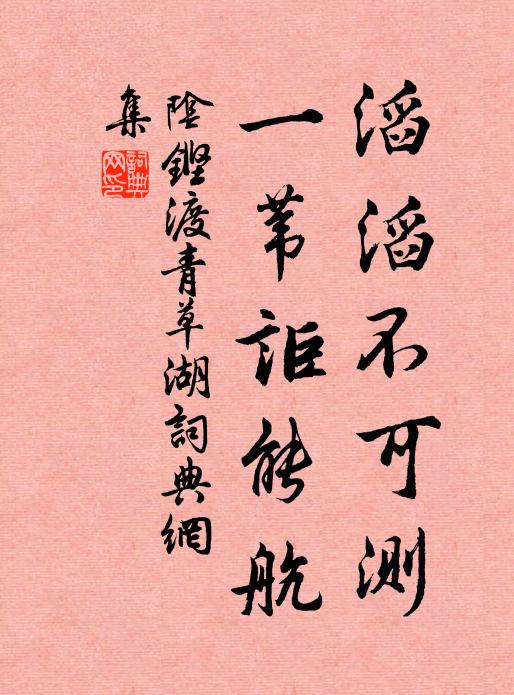 滔滔不可測
一苇詎能航
陰鏗渡青草湖詞典網
集
詞典
网印